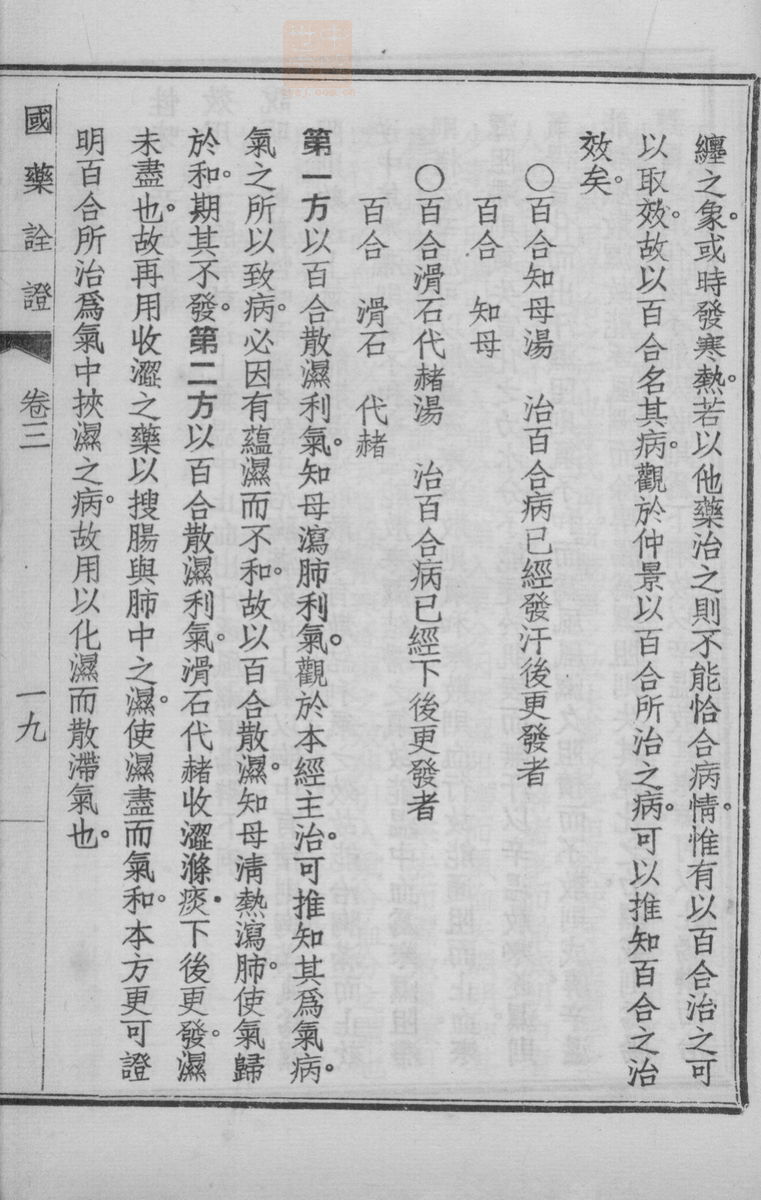 纏之象。或時發寒熱。若以他藥治之則不能恰合病情。惟有以百合治之可
以取效。故以百合名其病。觀於仲景以百合所治之病。可以推知百合之治
效矣。
○百合知母湯　治百合病已經發汗後更發者
百合　知母
○百合滑石代赭湯　治百合病已經下後更發者
百合　滑石　代赭
第一方以百合散濕利氣。知母瀉肺利氣。觀於本經主治。可推知其爲氣病。
氣之所以致病。必因有蘊濕而不和。故以百合散濕。知母淸熱瀉肺。使氣歸
於和。期其不發。第二方以百合散濕利氣。滑石代赭收澀滌痰。下後更發。濕
未盡也。故再用收澀之藥以搜腸與肺中之濕。使濕盡而氣和。本方更可證
明百合所治爲氣中挾濕之病。故用以化濕而散滯氣也。
國藥詮證　卷三　一九